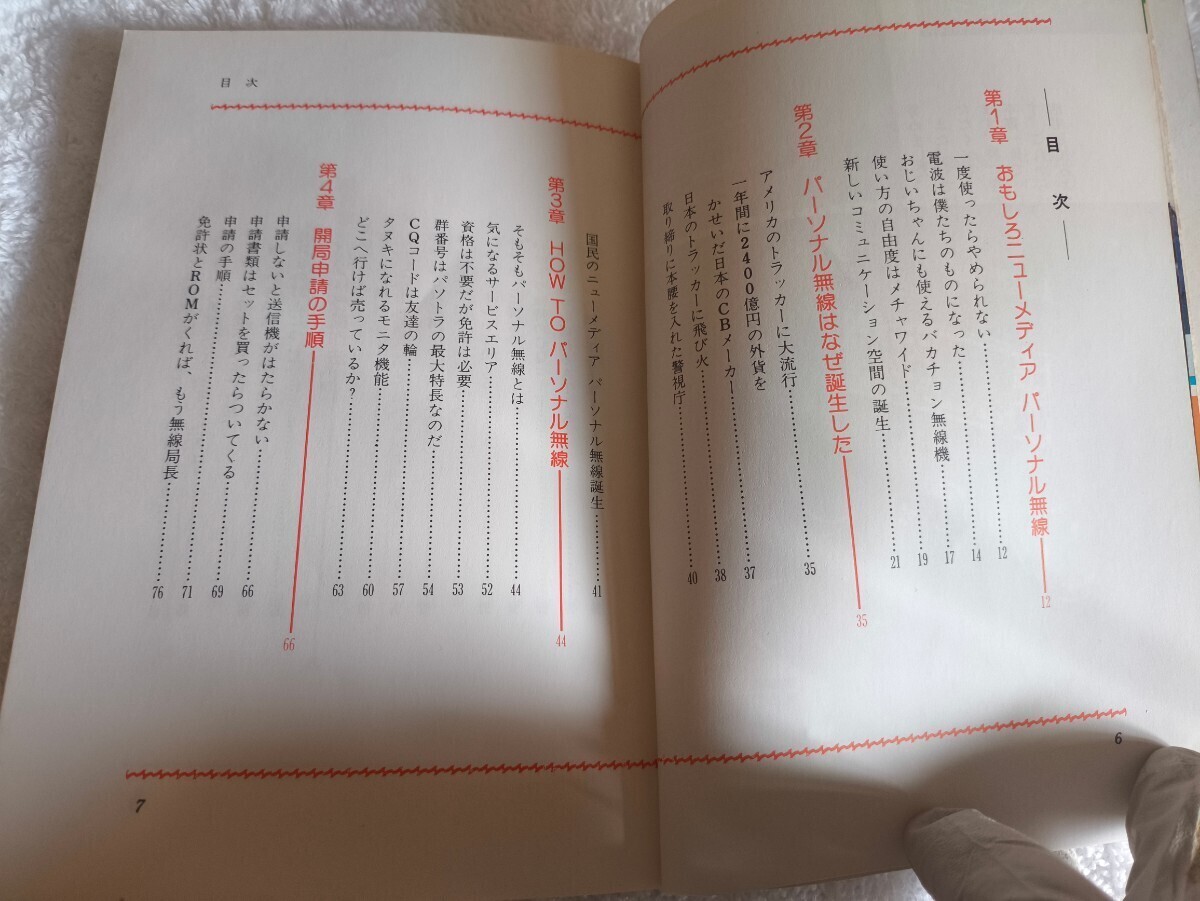 目次
第1章 おもしろニューメディア パーソナル無線 12
一度使ったらやめられない 12
電波は僕たちのものになった 14
おじいちゃんにも使えるバカチョン無線機 17
使い方の自由度はメチャワイド 19
新しいコミュニケーション空間の誕生 21
第2章 パーソナル無線はなぜ誕生した 35
アメリカのトラッカーに大流行 35
一年間に2400億円の外貨を
かせいだ日本のCBメーカー 37
日本のトラッカーに飛び火 38
取り締りに本腰を入れた警視庁 40
6
目次
国民のニューメディア パーソナル無線誕生 41
第3章 HOW TO パーソナル無線 44
そもそもパーソナル無線とは 44
気になるサービスエリア 52
資格は不要だが免許は必要 53
群番号はパソトラの最大特長なのだ 54
CQコードは友達の輪 57
タヌキになれるモニタ機能 60
どこへ行けば売っているか? 63
第4章 開局申請の手順 66
申請しないと送信機がはたらかない 66
申請書類はセットを買ったらついてくる 69
申請の手順 71
免許状とROMがくれば、もう無線局長 76
7